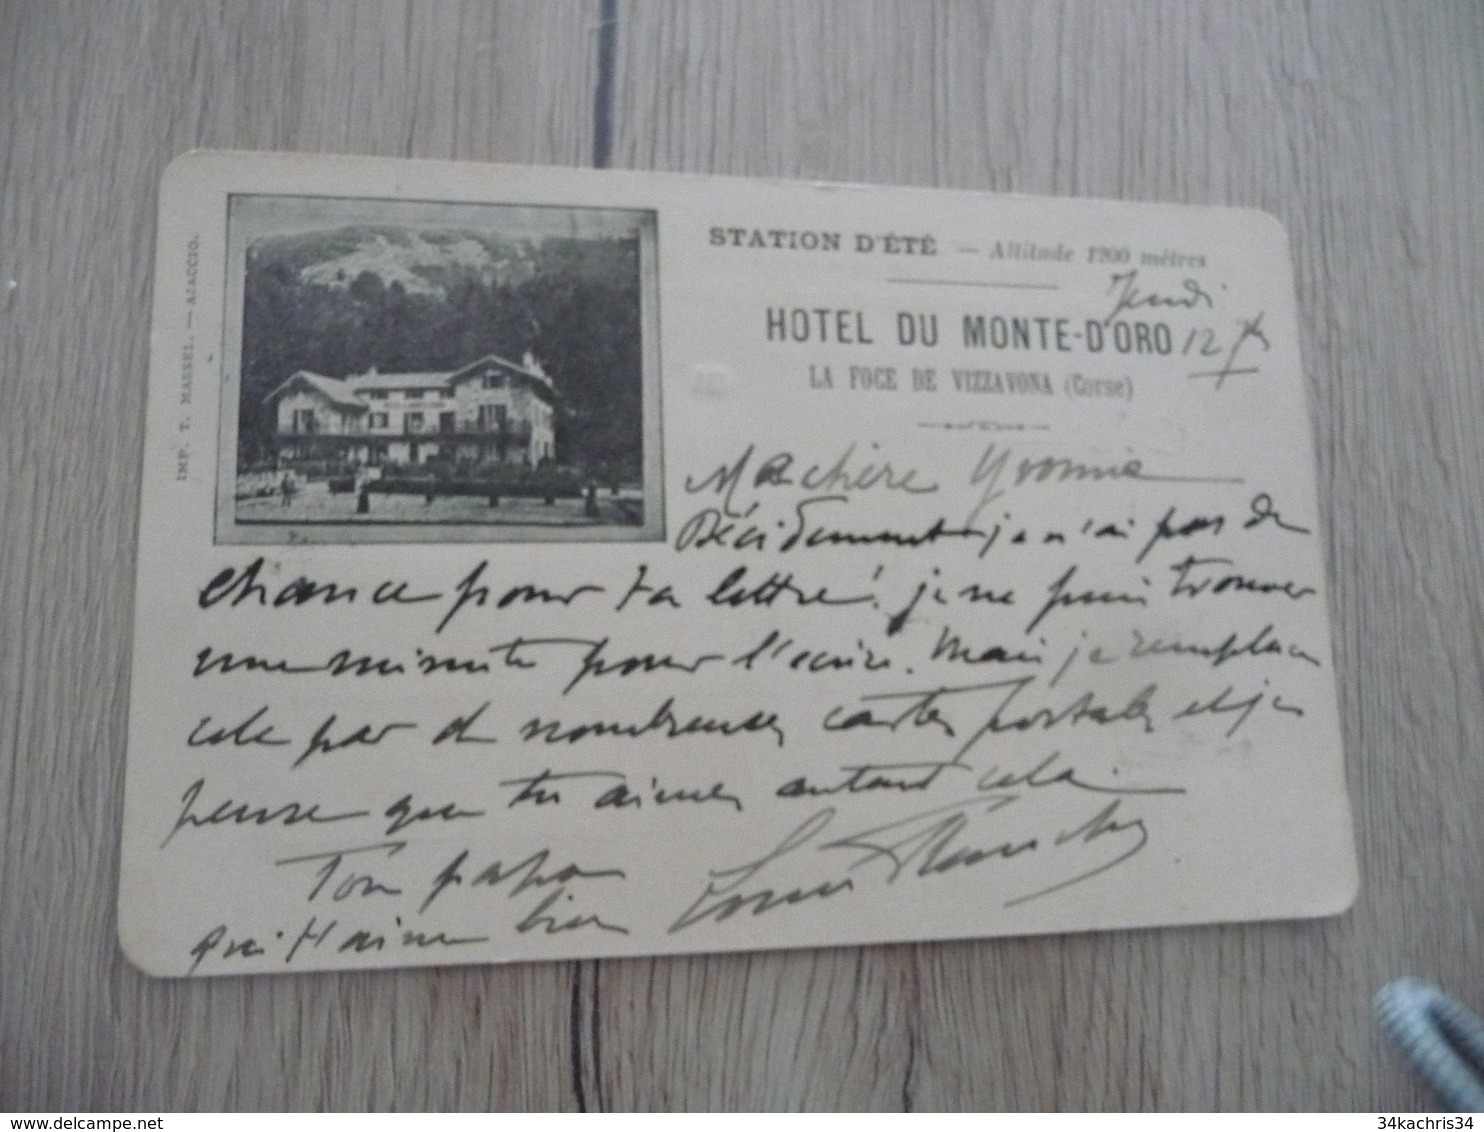 IMP. T. MASSEL. — AJACCIO.
STATION D'ÉTÉ — Altitude 1200 mètres
Jeudi
HOTEL DU MONTE-D'ORO 12
LA FOCE DE VIZZAVONA (Corse)
Ma chère Yvonne
Décidement je n'ai pas de
chance pour ta lettre! je ne puis trouver
une minute pour l'écrire. Mais je remplace
cela par de nombreuses cartes postales et je
pense que tu aimes autant cela.
Ton papa
qui t'aime bien Louis
34kachris34
delcampe.net